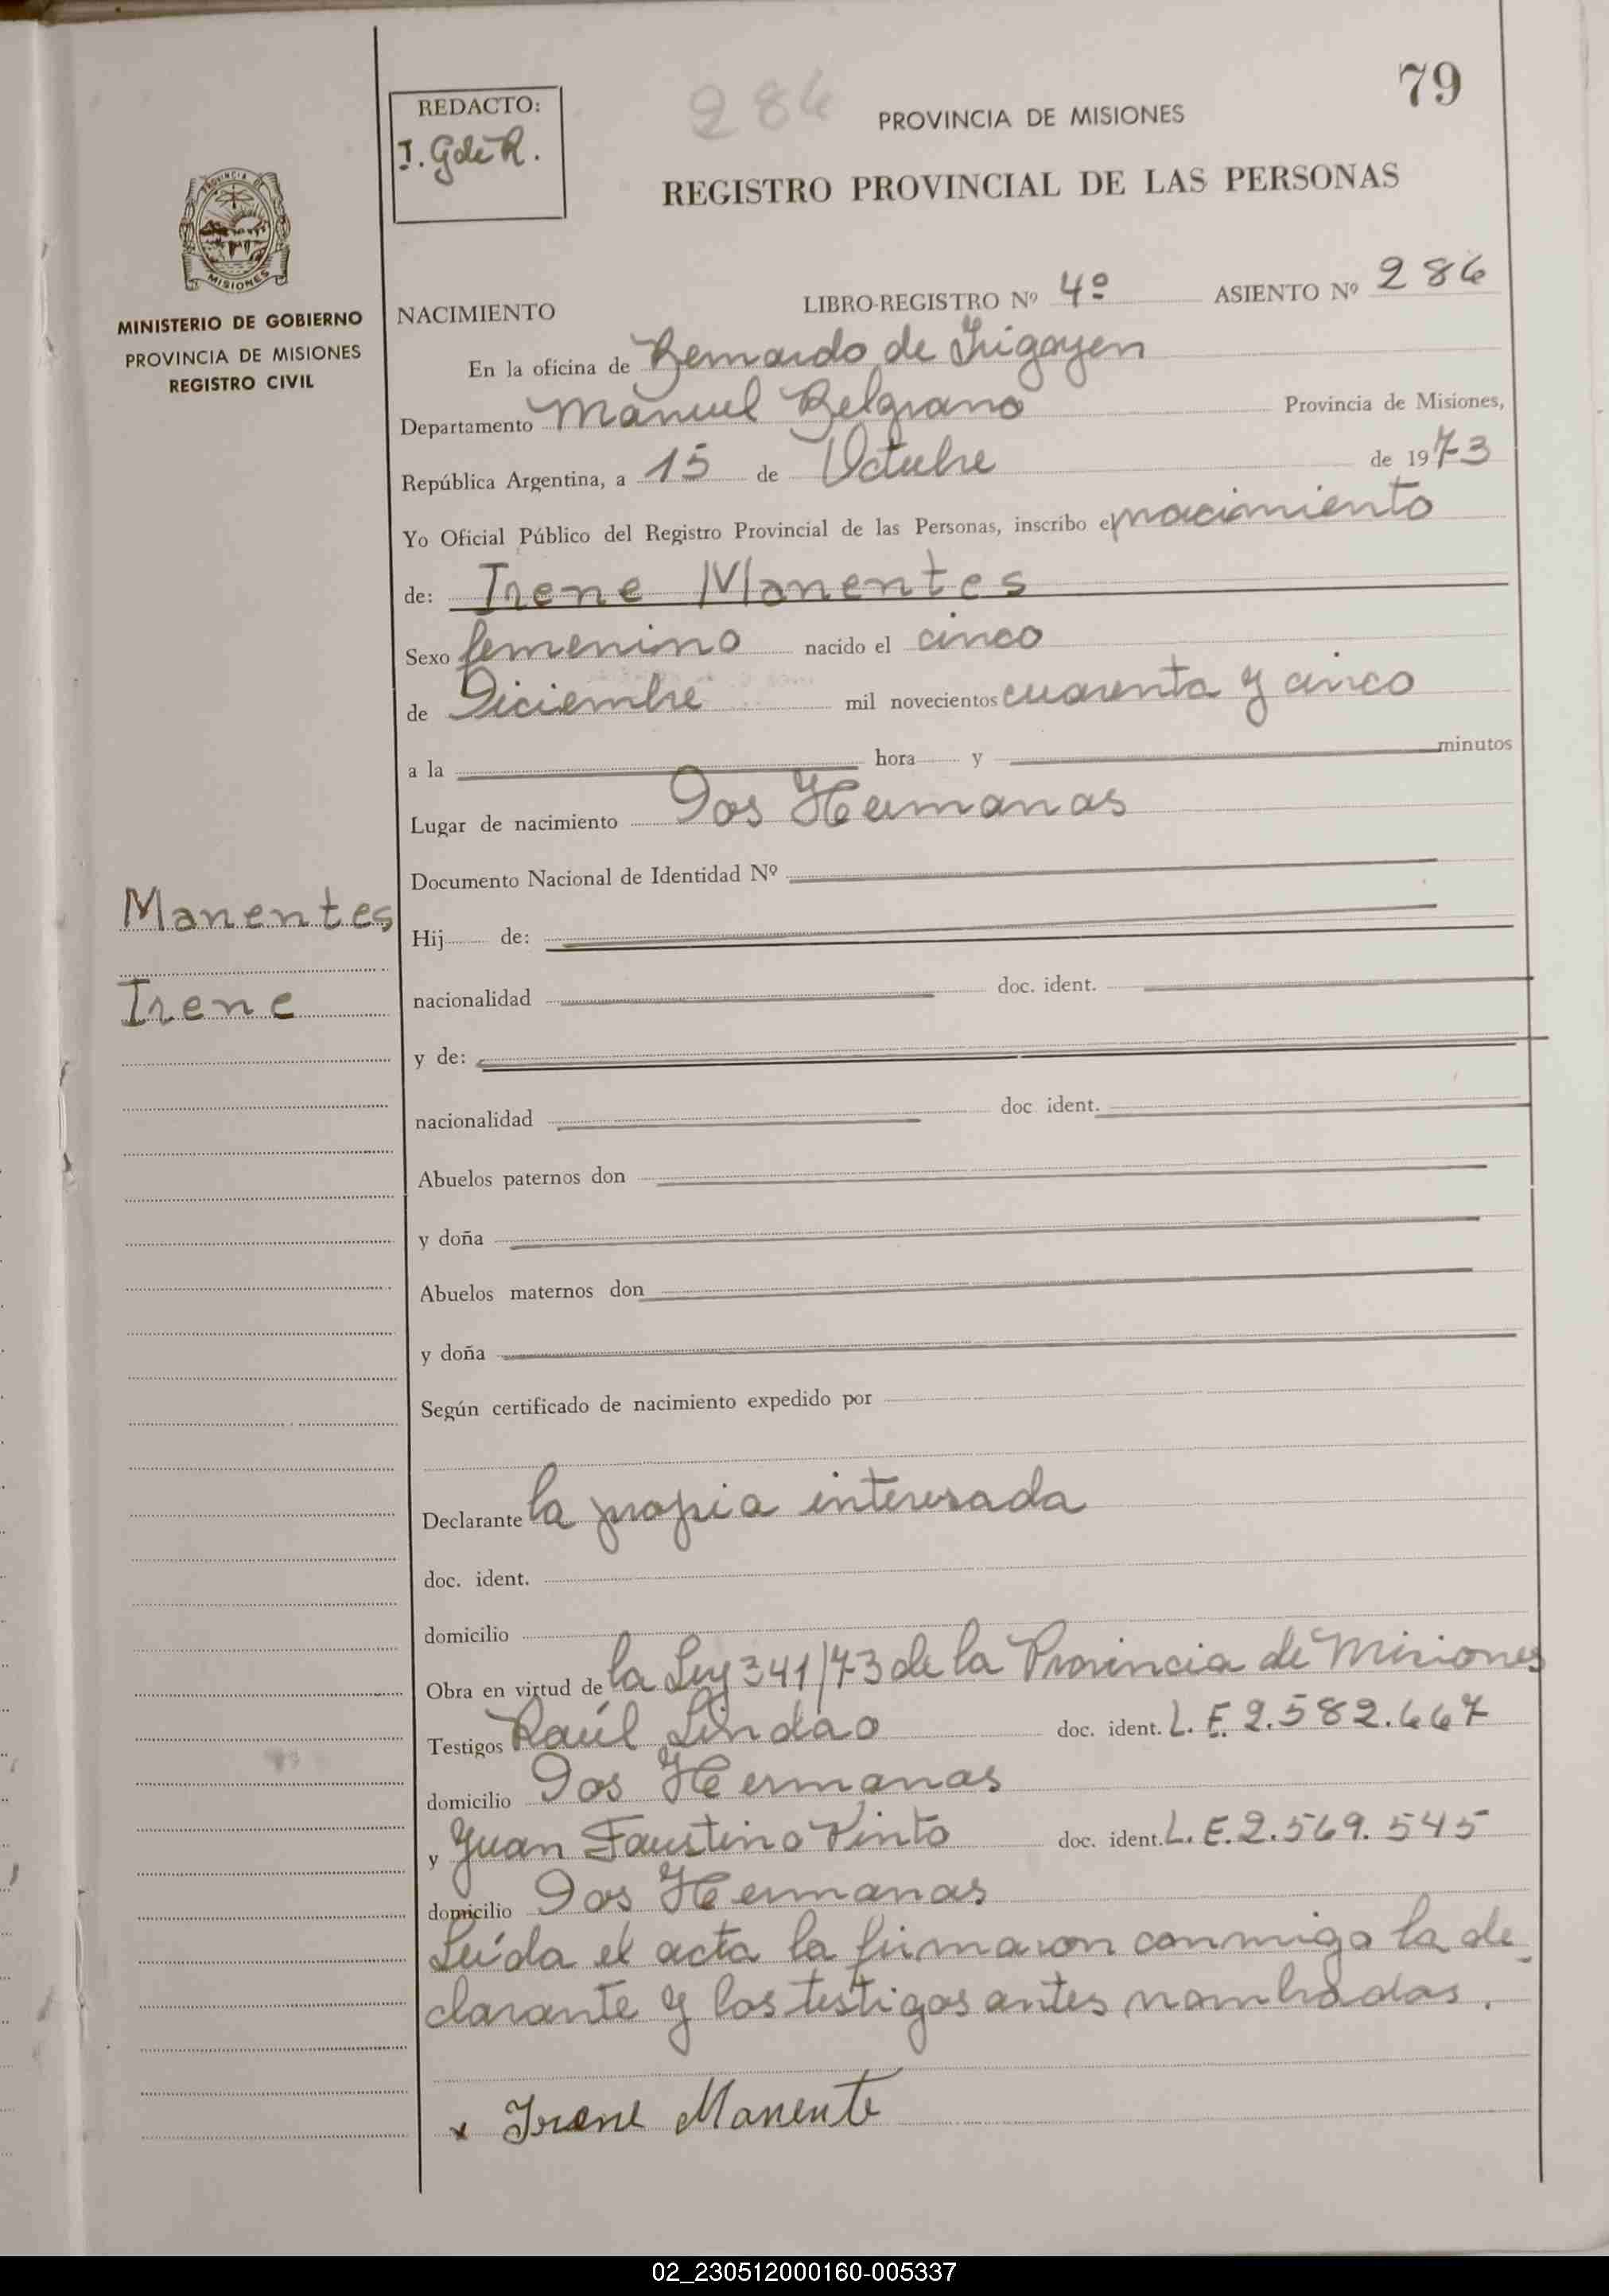 79
REDACTO:
I. G de R.
286
PROVINCIA DE MISIONES
REGISTRO PROVINCIAL DE LAS PERSONAS
PROVINCIA DE
MISIONES
MINISTERIO DE GOBIERNO
PROVINCIA DE MISIONES
REGISTRO CIVIL
NACIMIENTO LIBRO-REGISTRO Nº 4º ASIENTO Nº 286
En la oficina de Bernardo de Irigoyen
Departamento Manuel Belgrano Provincia de Misiones,
República Argentina, a 15 de Octubre de 1973
Yo Oficial Público del Registro Provincial de las Personas, inscribo el nacimiento
de: Irene Manentes
Sexo femenino nacido el cinco
de Diciembre mil novecientos cuarenta y cinco
a la hora y minutos
Lugar de nacimiento Dos Hermanas
Documento Nacional de Identidad Nº
Manentes
Irene
Hij de:
nacionalidad doc. ident.
y de:
nacionalidad doc ident.
Abuelos paternos don
y doña
Abuelos maternos don
y doña
Según certificado de nacimiento expedido por
Declarante la propia interesada
doc. ident.
domicilio
Obra en virtud de la Ley 341/73 de la Provincia de Misiones
Testigos Raúl Lindao doc. ident. L. E. 2.582.667
domicilio Dos Hermanas
y Juan Faustino Pinto doc. ident. L. E. 2.569.545
domicilio Dos Hermanas
Leída el acta la firmaron conmigo la de_
clarante y los testigos antes nombrados.
x Irene Manente
02_230512000160-005337